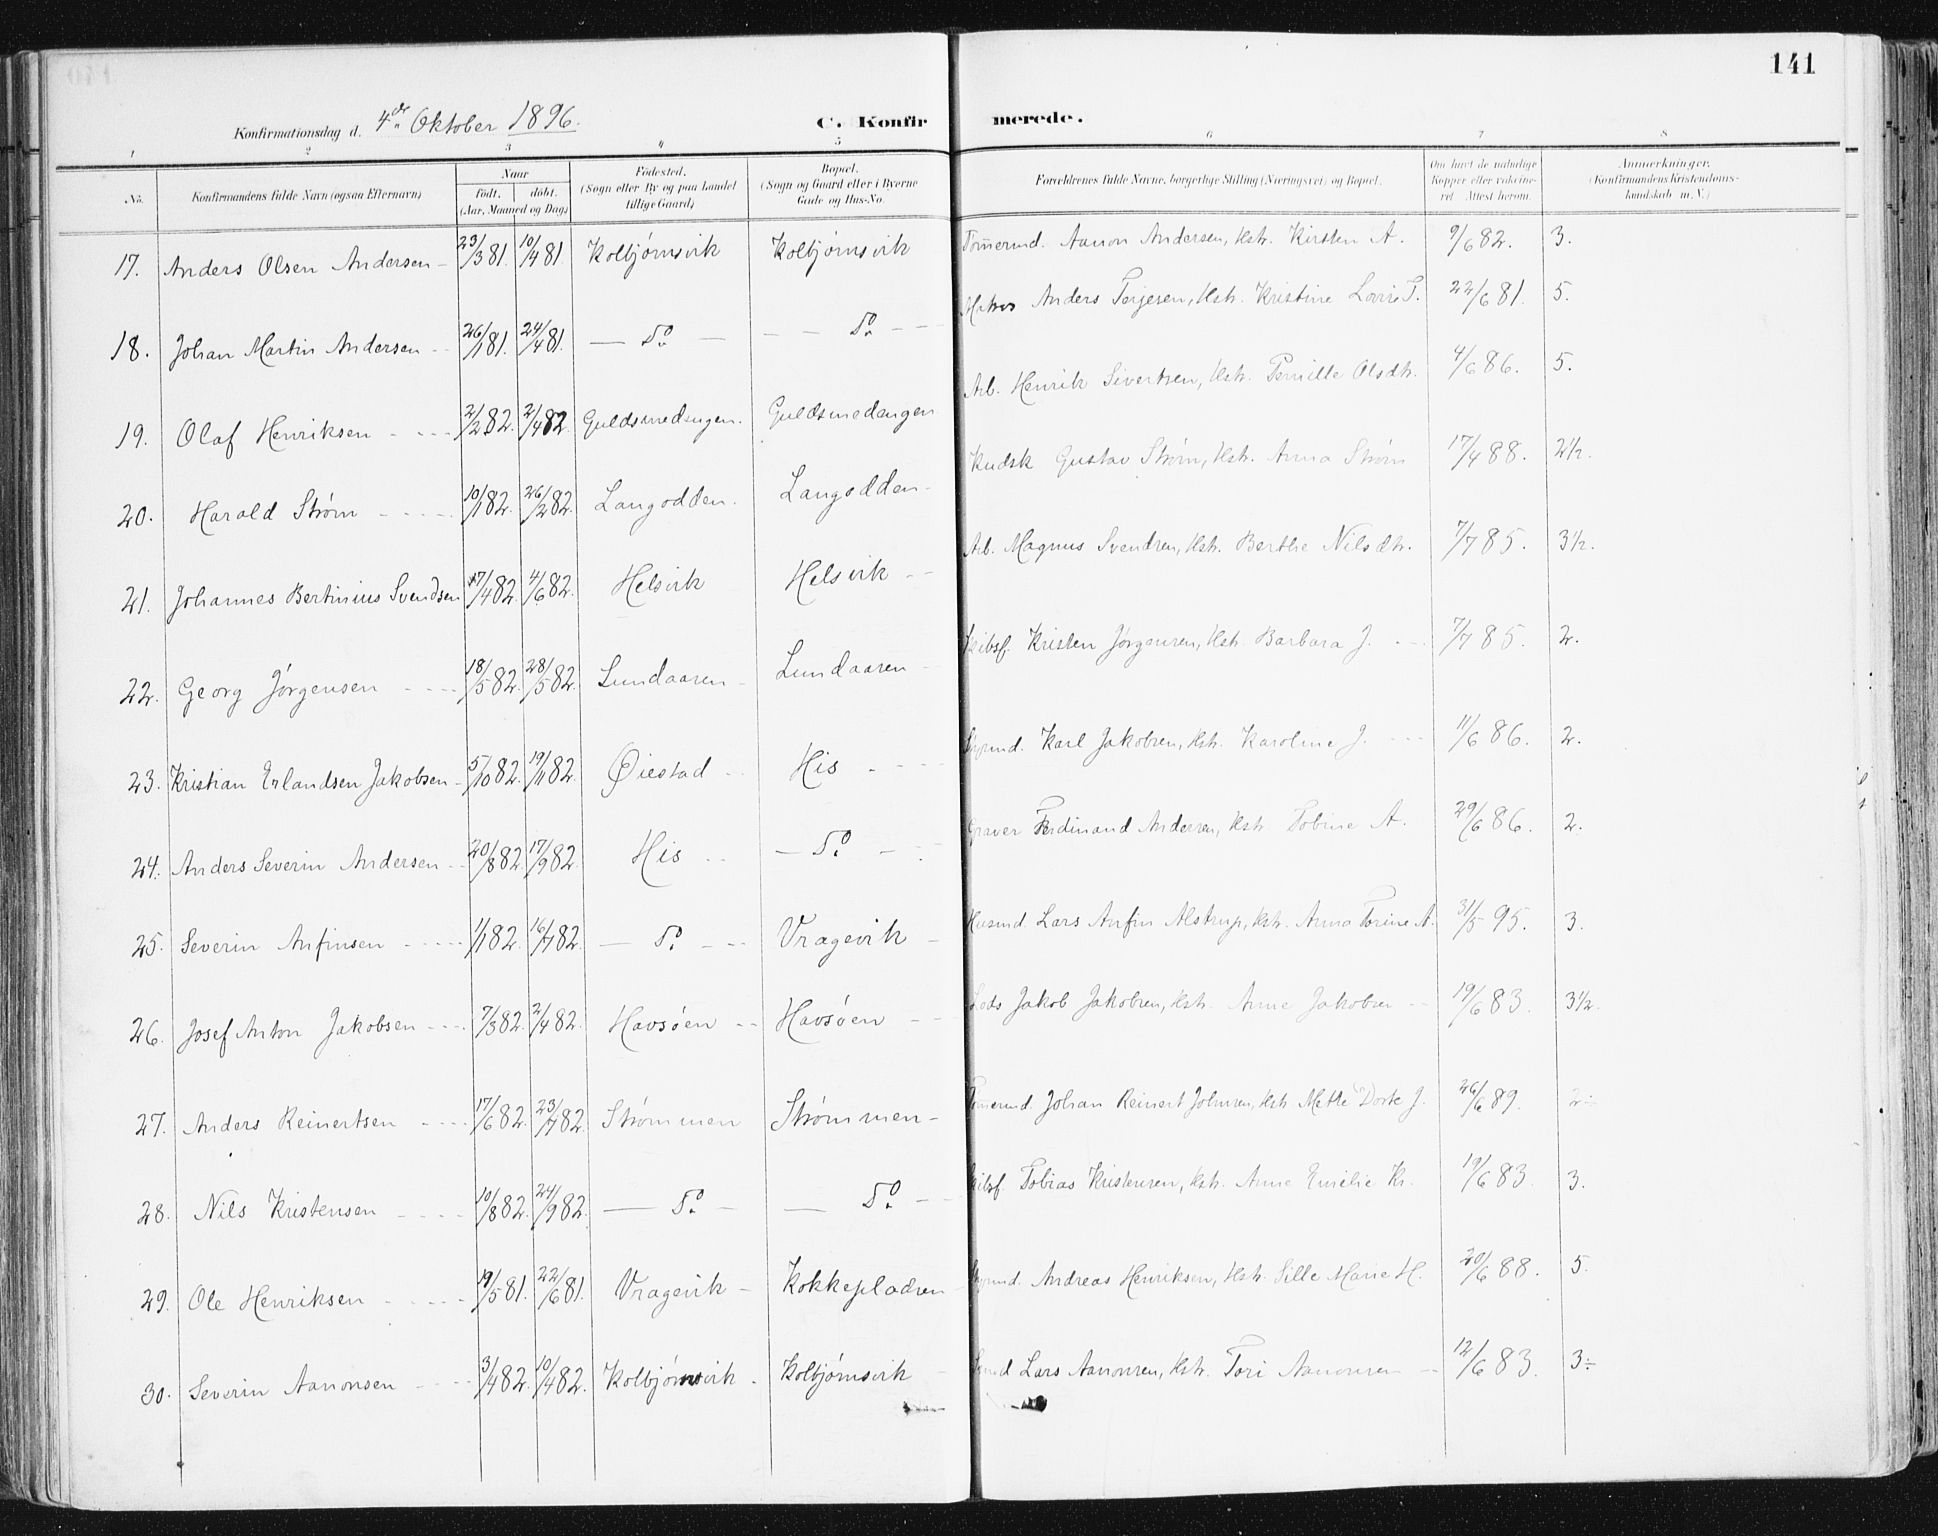 141
Konfirmationsdag d. 4de Oktober 1896. C. Konfirmerede.
1 2 3 4 5 6 7 8
No. Konfirmandens fulde Navn (ogsaa Efternavn) Naar født, døbt. (Aar, Maaned og Dag) Fødested. (Sogn eller By og paa Landet tillige Gaard) Bopæl. (Sogn og Gaard eller i Byerne Gade og Hus-No. Forældrenes fulde Navne, borgerlige Stilling (Næringsvei) og Bopæl. Om havt de naturlige Kopper eller vaccineret Attest herom. Anmærkninger. (Konfirmandens Kristendomskundskab m. V.)
17. Anders Olsen Andersen - 23/3 81. 10/4 81. Kolbjørnsvik Kolbjørnsvik Tømermd. Aanon Andersen, Hstr. Kirsten A. 9/6 82. 3.
18. Johan Martin Andersen - 26/1 81. 24/4 81. — Do — — — Do — — Matros Anders Terjesen, Hstr. Kristine Lovise T. 22/6 81. 5.
19. Olaf Henriksen - 2/2 82. 2/4 82. Guldsmedengen. Guldsmedengen Arb. Henrik Sivertsen, Hstr. Pernille Olsdtr. 4/6 86. 5.
20. Harald Strøm - 10/1 82. 26/2 82. Langodden. Langodden - Kudsk Gustav Strøm, Hstr. Anna Strøm 17/4 88. 2½.
21. Johannes Bertinius Svendsen 17/4 82. 4/6 82. Helsvik Helsvik - Arb. Magnus Svendsen, Hstr. Berthe Nilsdtr. 7/7 85. 3½.
22. Georg Jørgensen - 18/5 82. 28/5 82. Lundaaren - Lundaaren - Skibsf. Kristen Jørgensen, Hstr. Barbara J. - 7/7 85. 2.
23. Kristian Erlandsen Jakobsen - 5/10 82. 19/11 82. Øiestad - His - Karl Jakobsen, Hstr. Karoline J. - 11/6 86. 2.
24. Anders Severin Andersen - 20/8 82. 17/9 82. His - — Do - Graver Ferdinand Andersen, Hstr. Tobine A. 29/6 86. 2.
25. Severin Anfinsen - 1/1 82. 16/7 82. — Do - Vragevik - Husmd. Lars Anfin Alstrup, Hstr. Anna Torine A. 31/5 95. 3.
26. Josef Anton Jakobsen - 7/3 82. 2/4 82. Havsøen - Havsøen - Lods Jakob Jakobsen, Hstr. Anne Jakobsen - 19/6 83. 3½.
27. Anders Reinertsen - 17/6 82. 23/7 82. Strømmen Strømmen - Tømermd. Johan Reinert Johnsen, Hstr. Mette Dorte J. 26/6 89. 2÷
28. Nils Kristensen - 10/8 82. 24/9 82. — Do - — Do - Skibsf. Tobias Kristensen, Hstr. Anne Emilie Kr. 19/6 83. 3.
29. Ole Henriksen - 19/5 81. 22/6 81. Vragevik - Kokkepladsen - Andreas Henriksen, Hstr. Sille Marie H. 20/6 88. 5.
30. Severin Aanonsen - 3/4 82. 10/4 82. Kolbjørnsvik. Kolbjørnsvik - Lars Aanonsen, Hstr. Tori Aanonsen - 12/6 83. 3÷